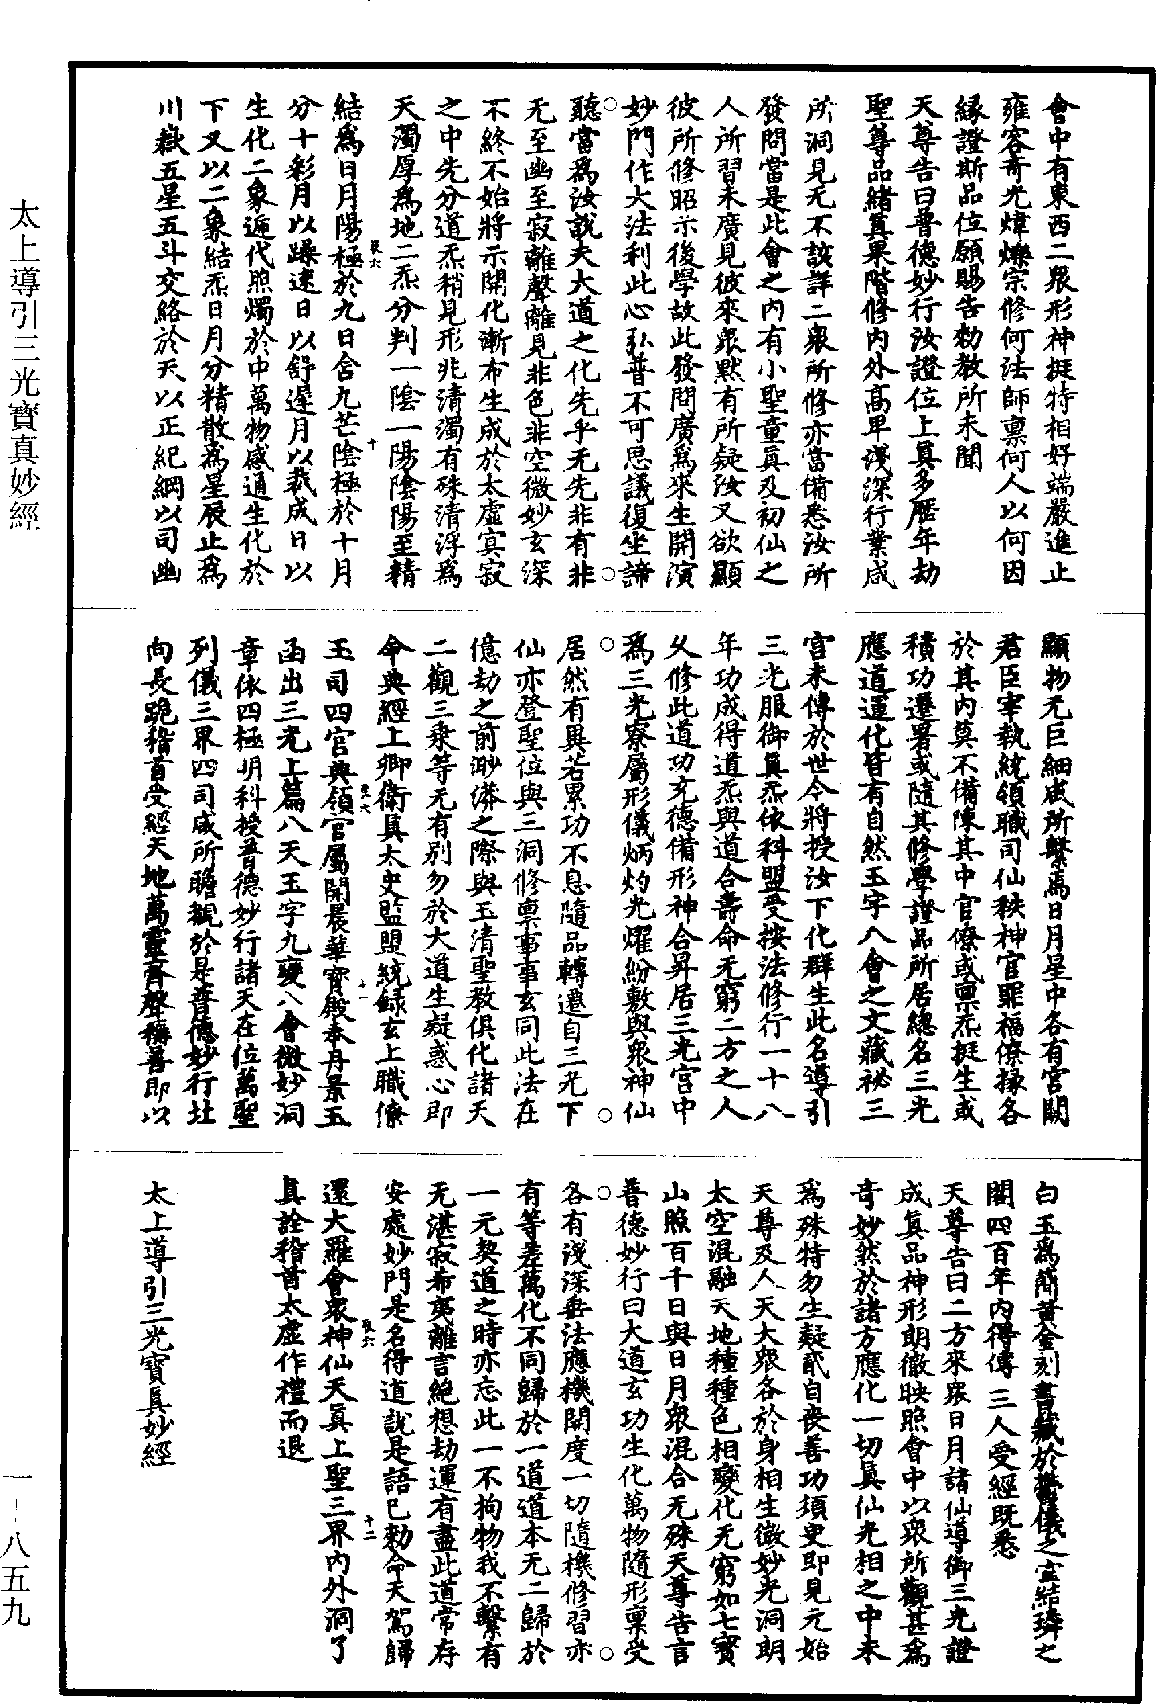 會中有東西二衆形神挺特相好端嚴進止
雍容奇光煒爍宗修何法師稟何人以何因
緣證斯品位願賜告勑教所未聞
天尊告曰普德妙行汝證位上真多歷年劫
聖尊品緒真果階修內外高卑淺深行業咸
所洞見无不該詳二衆所修亦當備悉汝所
發問當是此會之內有小聖童真及初仙之
人所習未廣見彼來衆默有所疑汝又欲顯
彼所修昭示後學故此發問廣爲來生開演
妙門作大法利此心弘普不可思議復坐諦
聽當爲汝說夫大道之化先乎无先非有非
无至幽至寂離聲離見非色非空微妙玄深
不終不始將示開化漸布生成於太虛寘寂
之中先分道炁稍見形兆清濁有殊清浮爲
天濁厚爲地二炁分判一陰一陽陰陽至精
結爲日月陽極於九日含九芒陰極於十月
分十彩月以躁速日以舒遲月以裁成日以
生化二象遞代照燭於中萬物感通生化於
下又以二象結炁日月分精散爲星辰止爲
川嶽五星五斗交絡於天以正紀綱以司幽
顯物无巨細咸所繫焉日月星中各有宮闕
君臣宰執統領職司仙秩神官罪福僚掾各
於其內莫不備陳其中官僚或稟炁挺生或
積功遷署或隨其修學證品所居總名三光
應道運化皆有自然玉字八會之文藏祕三
宮未傳於世令將授汝下化群生此名導引
三光服御真炁依科盟受按法修行一十八
年功成得道炁與道合壽命无窮二方之人
久修此道功充德備形神合昇居三光宮中
爲三光寮屬形儀炳灼光耀紛敷與衆神仙
居然有異若累功不息隨品轉遷自三光下
仙亦登聖位與三洞修稟事事玄同此法在
億劫之前渺漭之際與玉清聖教俱化諸天
二觀三乘等无有別勿於大道生疑惑心即
命典經上卿衛真太史監盟統錄玄上職僚
玉司四官典領官屬開晨華寶殿奉丹景玉
函出三光上篇八天玉字九變八會微妙洞
章依四極明科授普德妙行諸天在位萬聖
列儀三界四司咸所瞻覩於是普德妙行北
向長跪稽首受經天地萬靈齊聲稱善即以
白玉爲簡黃金刻書藏於鬱儀之室結璘之
闕四百年內得傳三人受經既悉
天尊告曰二方來衆日月諸仙導御三光證
成真品神形朗徹映照會中以衆所觀甚爲
奇妙然於諸方應化一切真仙光相之中未
爲殊特勿生疑貳自喪善功須臾即見元始
天尊及人天大衆各於身相生微妙光洞朗
太空混融天地種種色相變化无窮如七寶
山照百千日與日月衆混合无殊天尊告言
普德妙行曰大道玄功生化萬物隨形稟受
各有淺深垂法應機開度一切隨機修習亦
有等差萬化不同歸於一道道本无二歸於
一元契道之時亦忘此一不拘物我不繫有
无湛寂希夷離言絕想劫運有盡此道常存
安處妙門是名得道說是語已勑命天駕歸
還大羅會衆神仙天真上聖三界內外洞了
真詮稽首太虛作禮而退
太上導引三光寶真妙經
太上導引三光寶真妙經
一－八五九